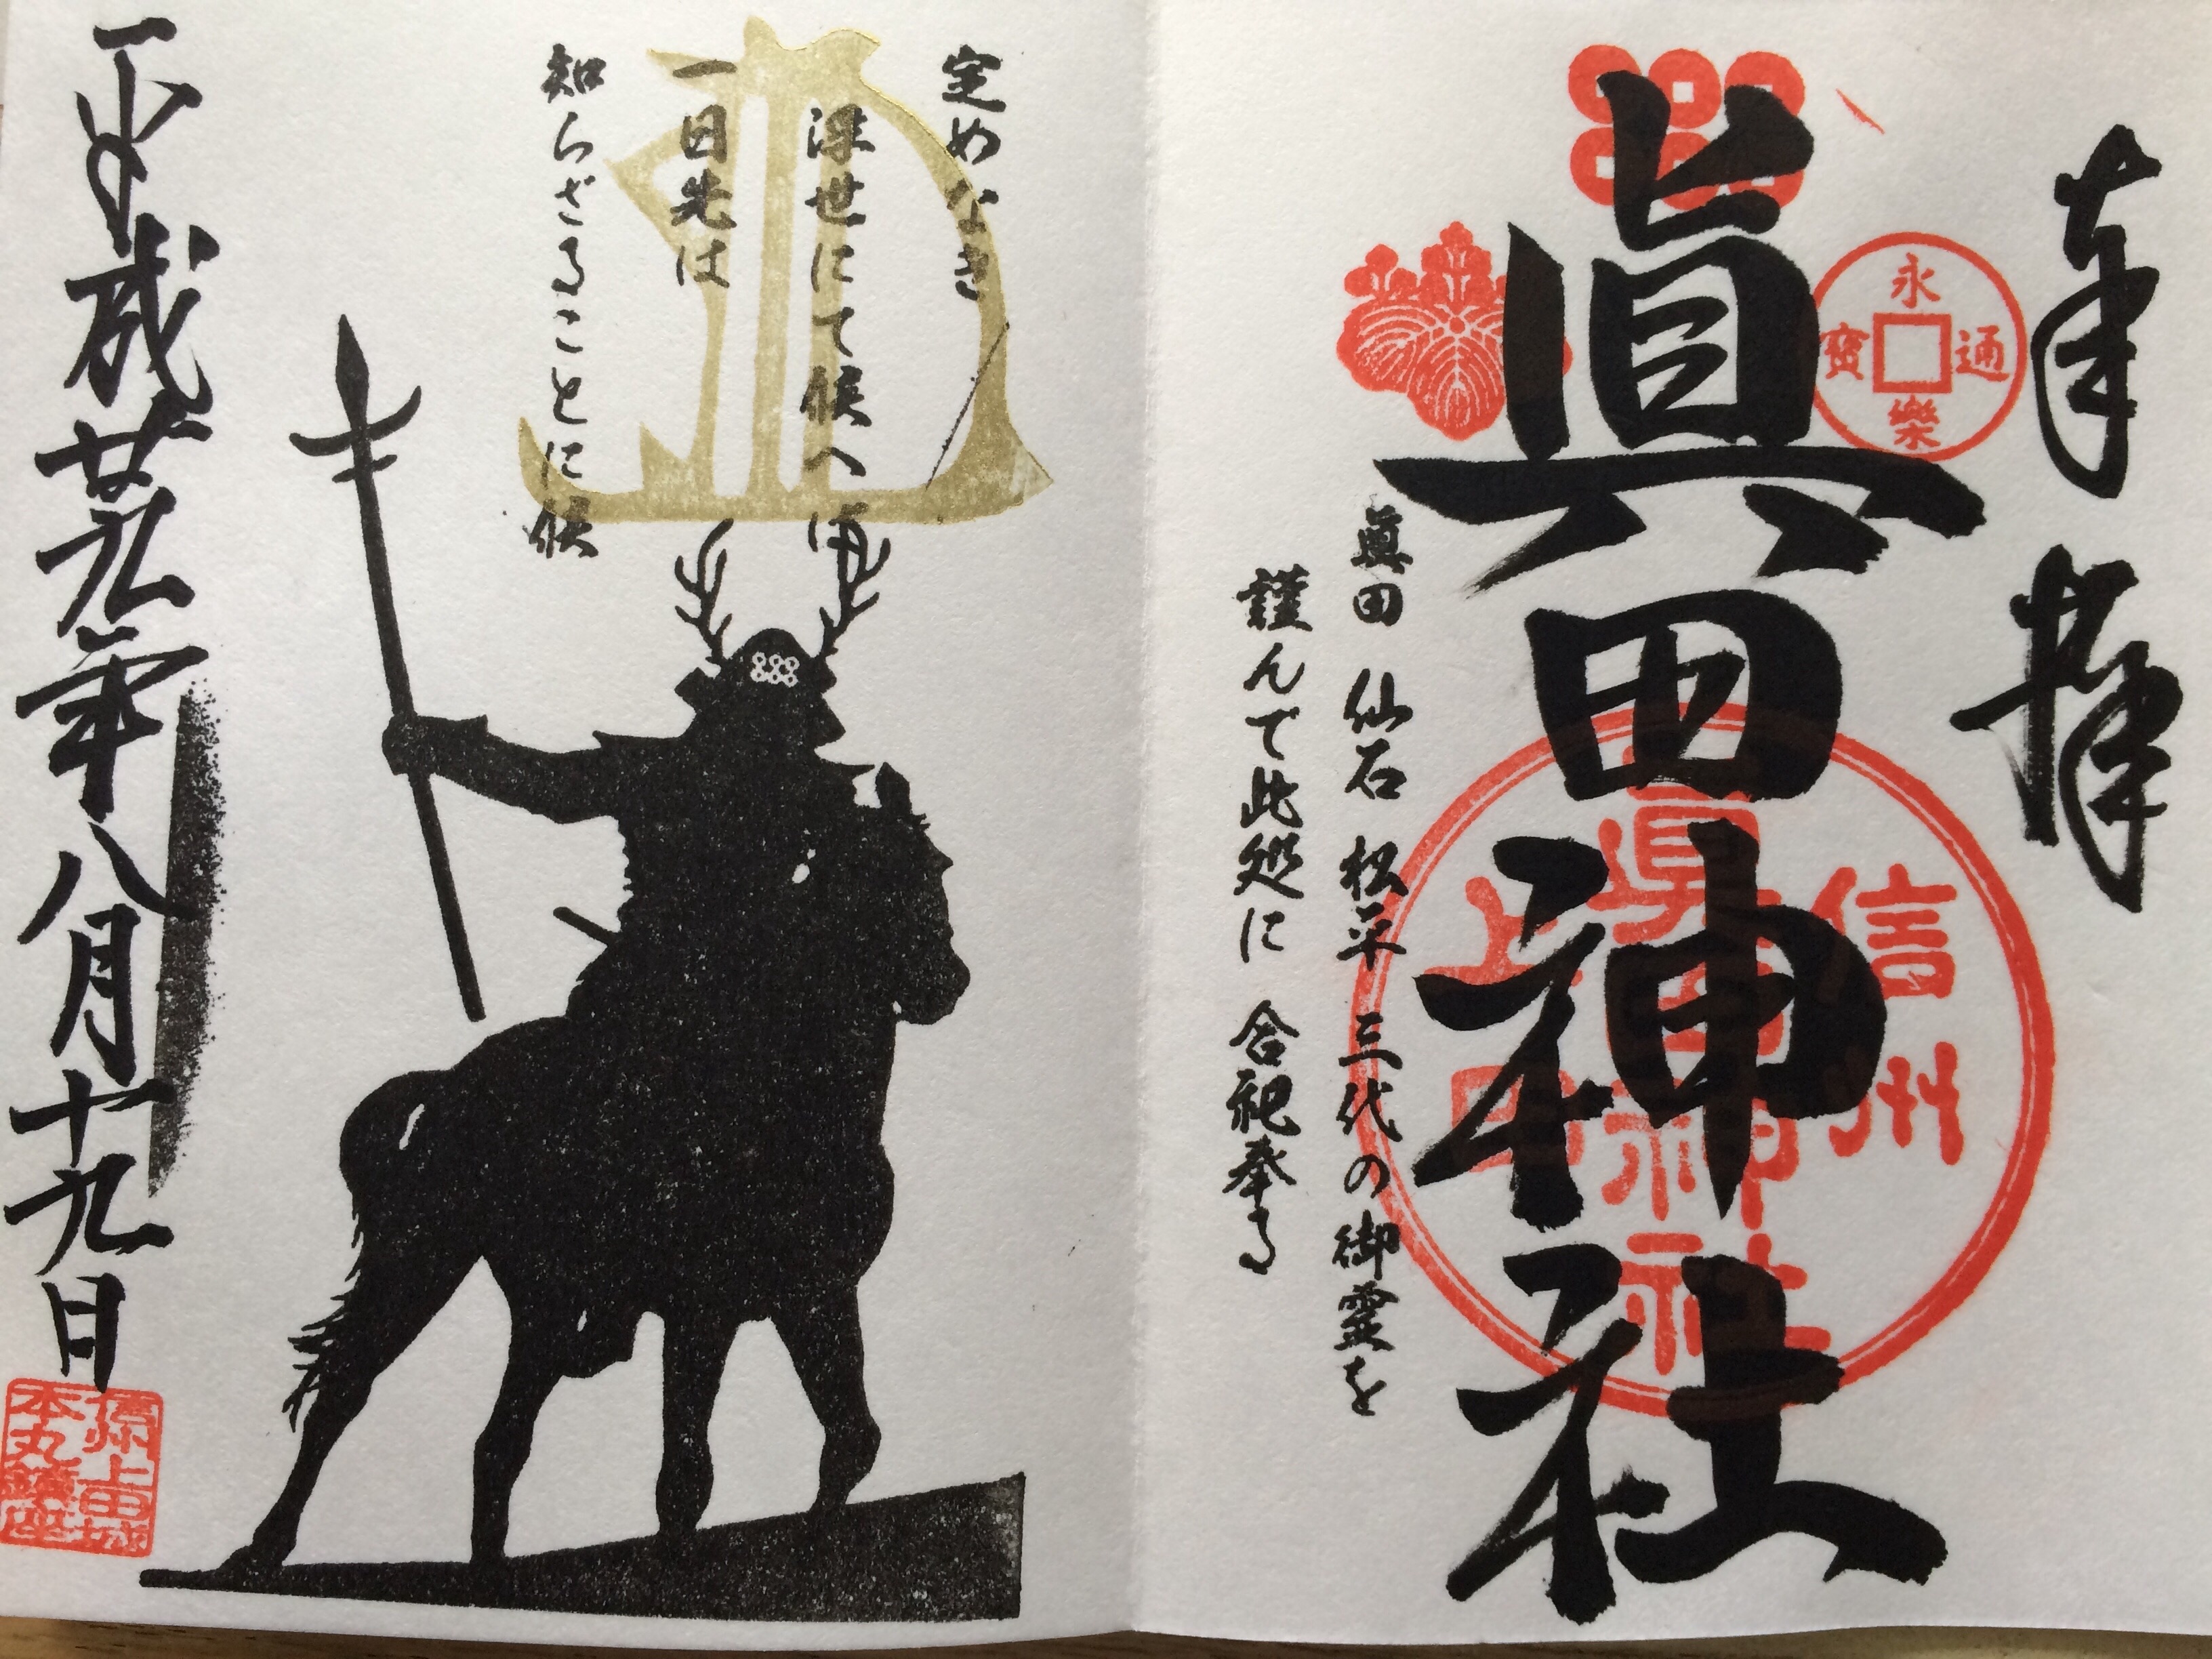 奉拝
永樂通寳
眞田神社
信州
眞田神社
上田
眞田 仙石 松平 三代の御霊を
謹んで此処に 合祀奉る
定めなき
浮世にて候へば
一日先は
知らざることに候
平成廿九年八月十九日